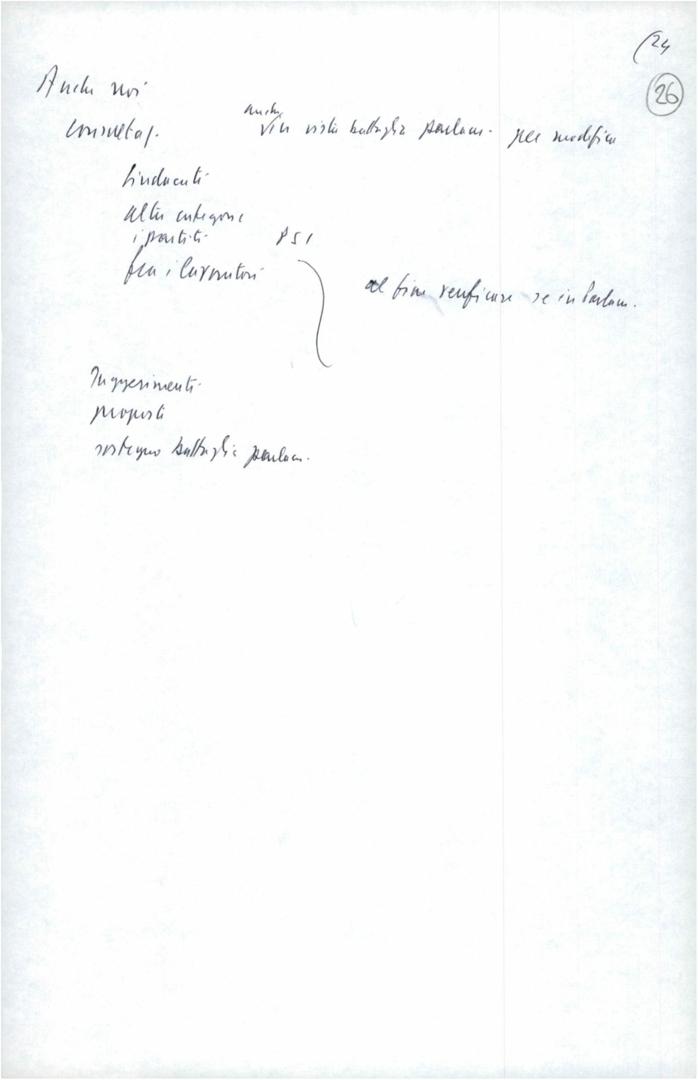 24
26
Anche noi
consultaz.
anche
in vista battaglia parlam. per modifica
Sindacati
altre categorie
i partiti PSI
fra i lavoratori
al fine verificare se in Parlam.
Suggerimenti
proposte
sostegno battaglia parlam.